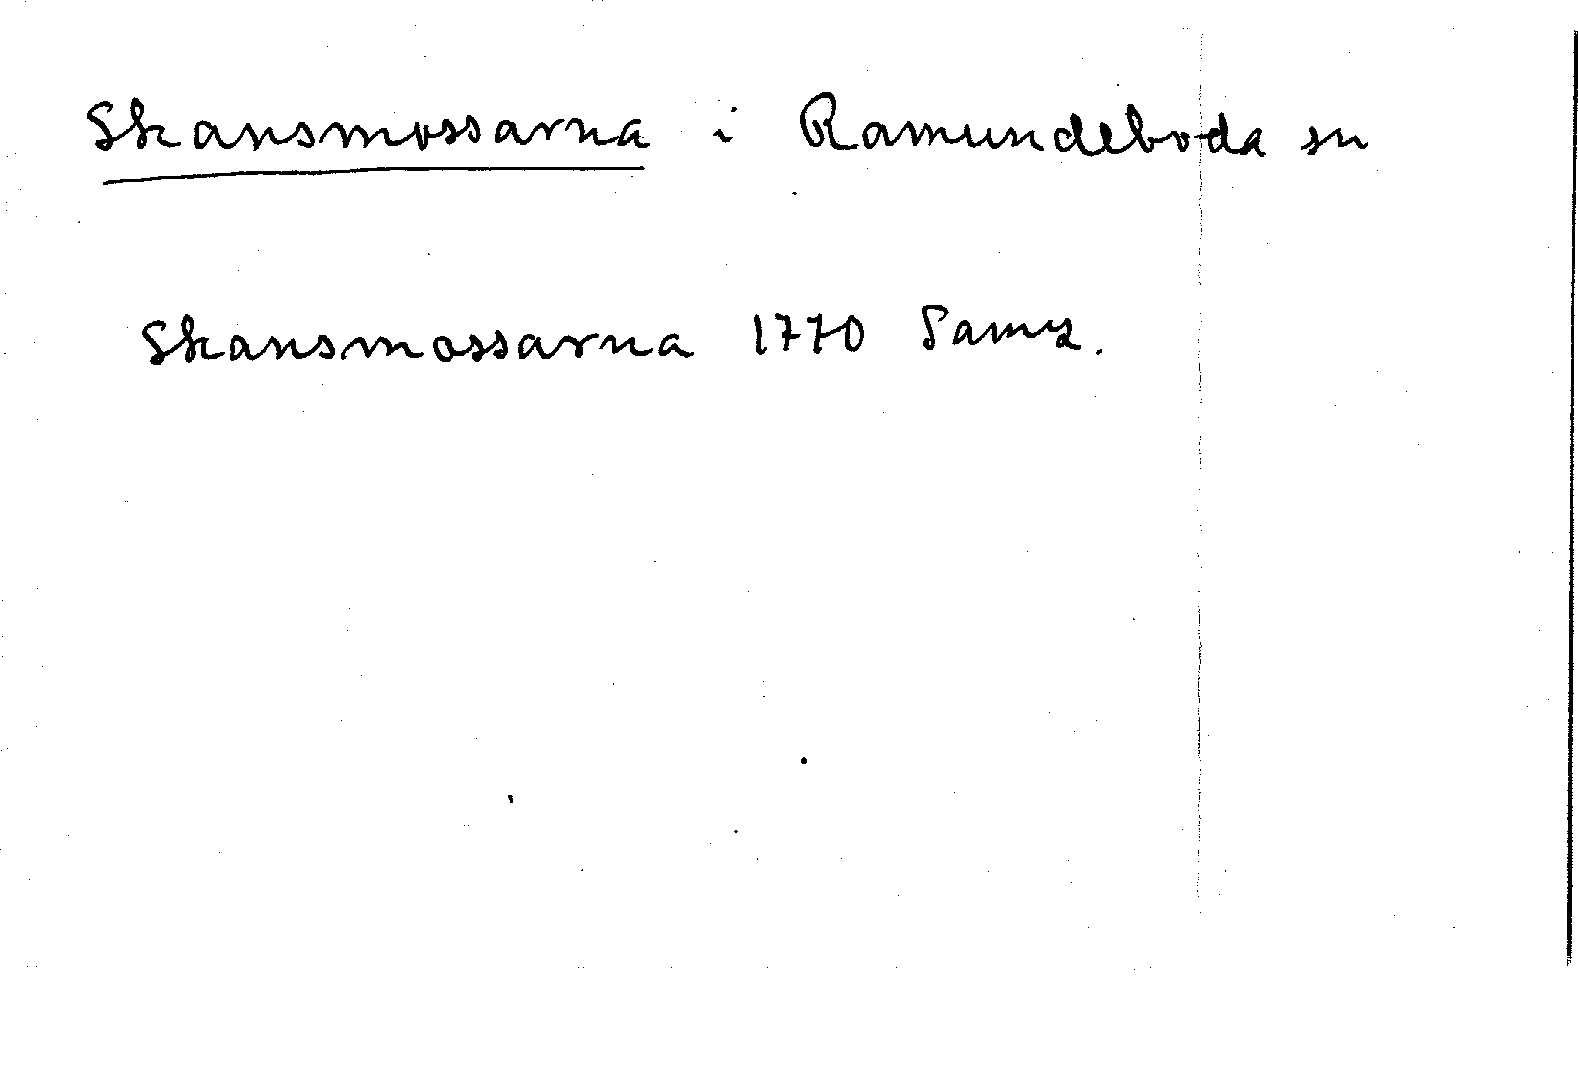 Skansmossarna i Ramundeboda sn
Skansmossarna 1770